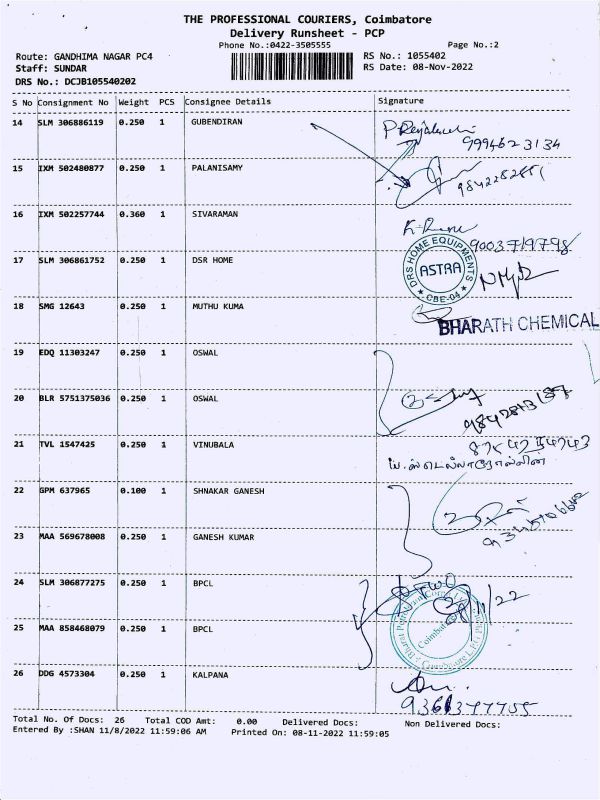 THE PROFESSIONAL COURIERS, Coimbatore
Delivery Runsheet - PCP
Phone No.:0422-3505555 Page No.:2
Route: GANDHIMA NAGAR PC4 RS No.: 1055402
Staff: SUNDAR RS Date: 08-Nov-2022
DRS No.: DCJB105540202
S No Consignment No Weight PCS Consignee Details Signature
14 SLM 306886119 0.250 1 GUBENDIRAN
9994623134
15 IXM 502480877 0.250 1 PALANISAMY
16 IXM 502257744 0.360 1 SIVARAMAN
9003719798
17 SLM 306861752 0.250 1 DSR HOME
DRS HOME EQUIPMENTS
ASTRA
★ CBE-04 ★
18 SMG 12643 0.250 1 MUTHU KUMA
BHARATH CHEMICAL
19 EDQ 11303247 0.250 1 OSWAL
20 BLR 5751375036 0.250 1 OSWAL
21 TVL 1547425 0.250 1 VINUBALA
22 GPM 637965 0.100 1 SHNAKAR GANESH
23 MAA 569678008 0.250 1 GANESH KUMAR
24 SLM 306877275 0.250 1 BPCL
25 MAA 858468079 0.250 1 BPCL
Coimbatore
26 DDG 4573304 0.250 1 KALPANA
9361377755
Total No. Of Docs: 26 Total COD Amt: 0.00 Delivered Docs: Non Delivered Docs:
Entered By :SHAN 11/8/2022 11:59:06 AM Printed On: 08-11-2022 11:59:05